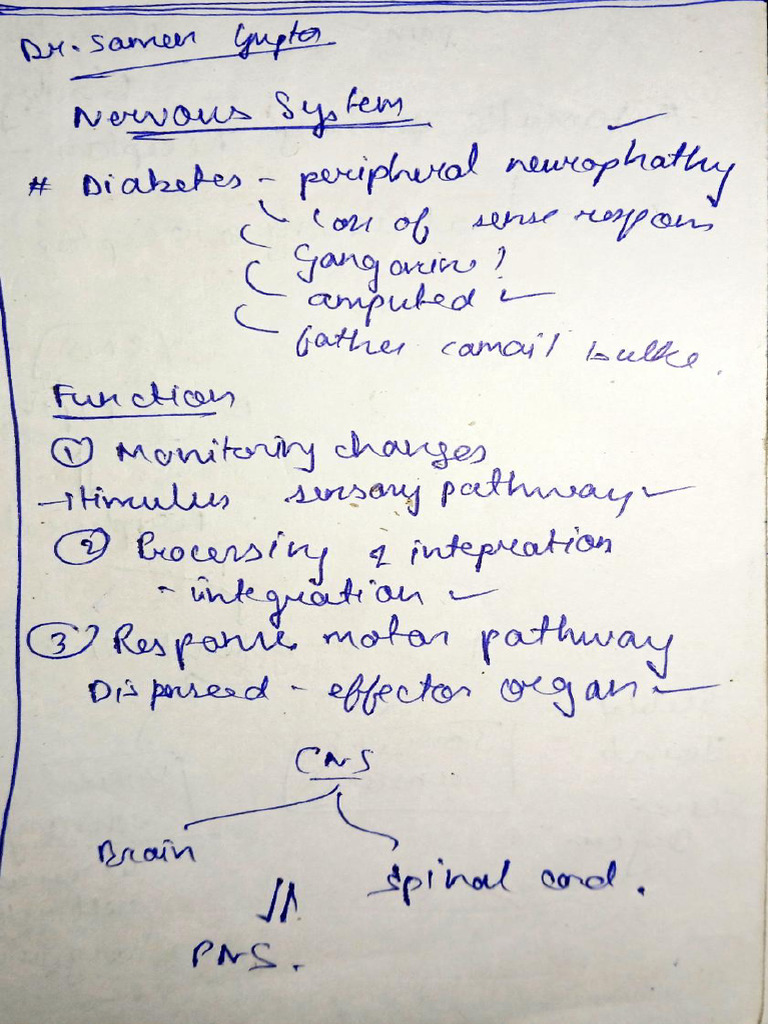 Dr. Sameer Gupta
Nervous System
# Diabetes - peripheral neurophathy
loss of sense respons
Gangarin?
amputed
father
Function
① Monitoring changes
- Stimulus sensory pathway
② Processing & integreation
- integriation
③ Response motor pathway
- effector organ
CNS
Brain
Spinal cord.
PNS.